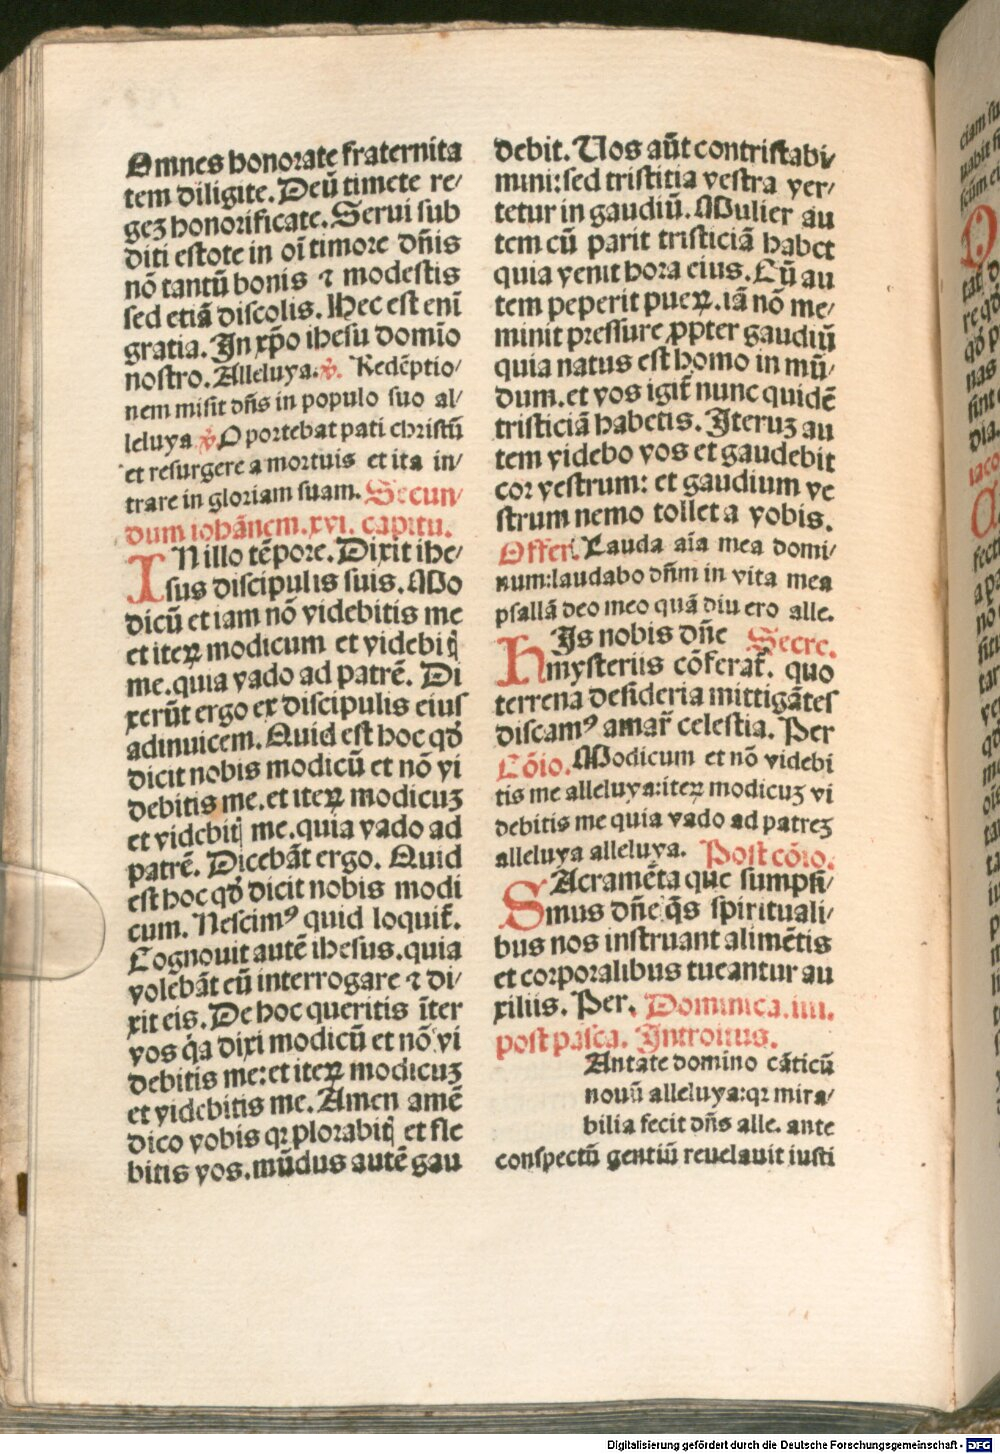 Omnes honorate fraternita
tem diligite. Deū timete re/
geʒ honorificate. Serui sub
diti estote in oī timore dn̄is
nō tantū bonis ⁊ modestis
sed etiā discolis. Hec est enī
gratia. In xp̄o ihesu domīo
nostro. Alleluya. ℣. Redēptio/
nem misit dn̄s in populo suo al/
leluya ℣ Oportebat pati christū
et resurgere a mortuis et ita in/
trare in gloriam suam. Secun/
dum iohānem. xvi. capitu.
IN illo tēpore. Dixit ihe/
sus discipulis suis. Mo
dicū et iam nō videbitis me
et iteꝝ modicum et videbiꝗ
me. quia vado ad patrē. Di
xerūt ergo ex discipulis eius
adinuicem. Quid est hoc qd̓
dicit nobis modicū et nō vi
debitis me. et iteꝝ modicuʒ
et videbitꝗ me. quia vado ad
patrē. Dicebāt ergo. Quid
est hoc qd̓ dicit nobis modi
cum. Nescimꝰ quid loquit̄.
Cognouit autē ihesus. quia
volebāt eū interrogare ⁊ di/
xit eis. De hoc queritis īter
vos q̇a dixi modicū et nō vi
debitis me: et iteꝝ modicuʒ
et videbitis me. Amen amē
dico vobis qꝛ plorabitꝗ et fle
bitis vos. mūdus autē gau
debit. Uos aūt contristabi/
mini: sed tristitia vestra ver/
tetur in gaudiū. Mulier au
tem cū parit tristiciā habet
quia venit hora eius. Cū au
tem peperit pueꝝ. iā nō me/
minit pressure ꝓpter gaudiū
quia natus est homo in mū/
dum. et vos igit̄ nunc quidē
tristiciā habetis. Iteruʒ au
tem videbo vos et gaudebit
cor vestrum: et gaudium ve
strum nemo tollet a vobis.
Offeri. Lauda aīa mea domi/
num: laudabo dn̄m in vita mea
psallā deo meo quā diu ero alle.
HIs nobis dn̄e Secre.
mysteriis cōferat̄. quo
terrena desideria mittigātes
discamꝰ amar̄ celestia. Per
Cōio. Modicum et nō videbi
tis me alleluya: iteꝝ modicuʒ vi
debitis me quia vado ad patreʒ
alleluya alleluya. Post cōio.
SAcramēta que sumpsi/
mus dn̄e q̄s spirituali/
bus nos instruant alimētis
et corporalibus tueantur au
xiliis. Per. Dominica. iiii.
post pasca. Introitus.
Antate domino cāticū
nouū alleluya: qꝛ mira/
bilia fecit dn̄s alle. ante
conspectū gentiū reuelauit iusti
Digitalisierung gefördert durch die Deutsche Forschungsgemeinschaft - DFG